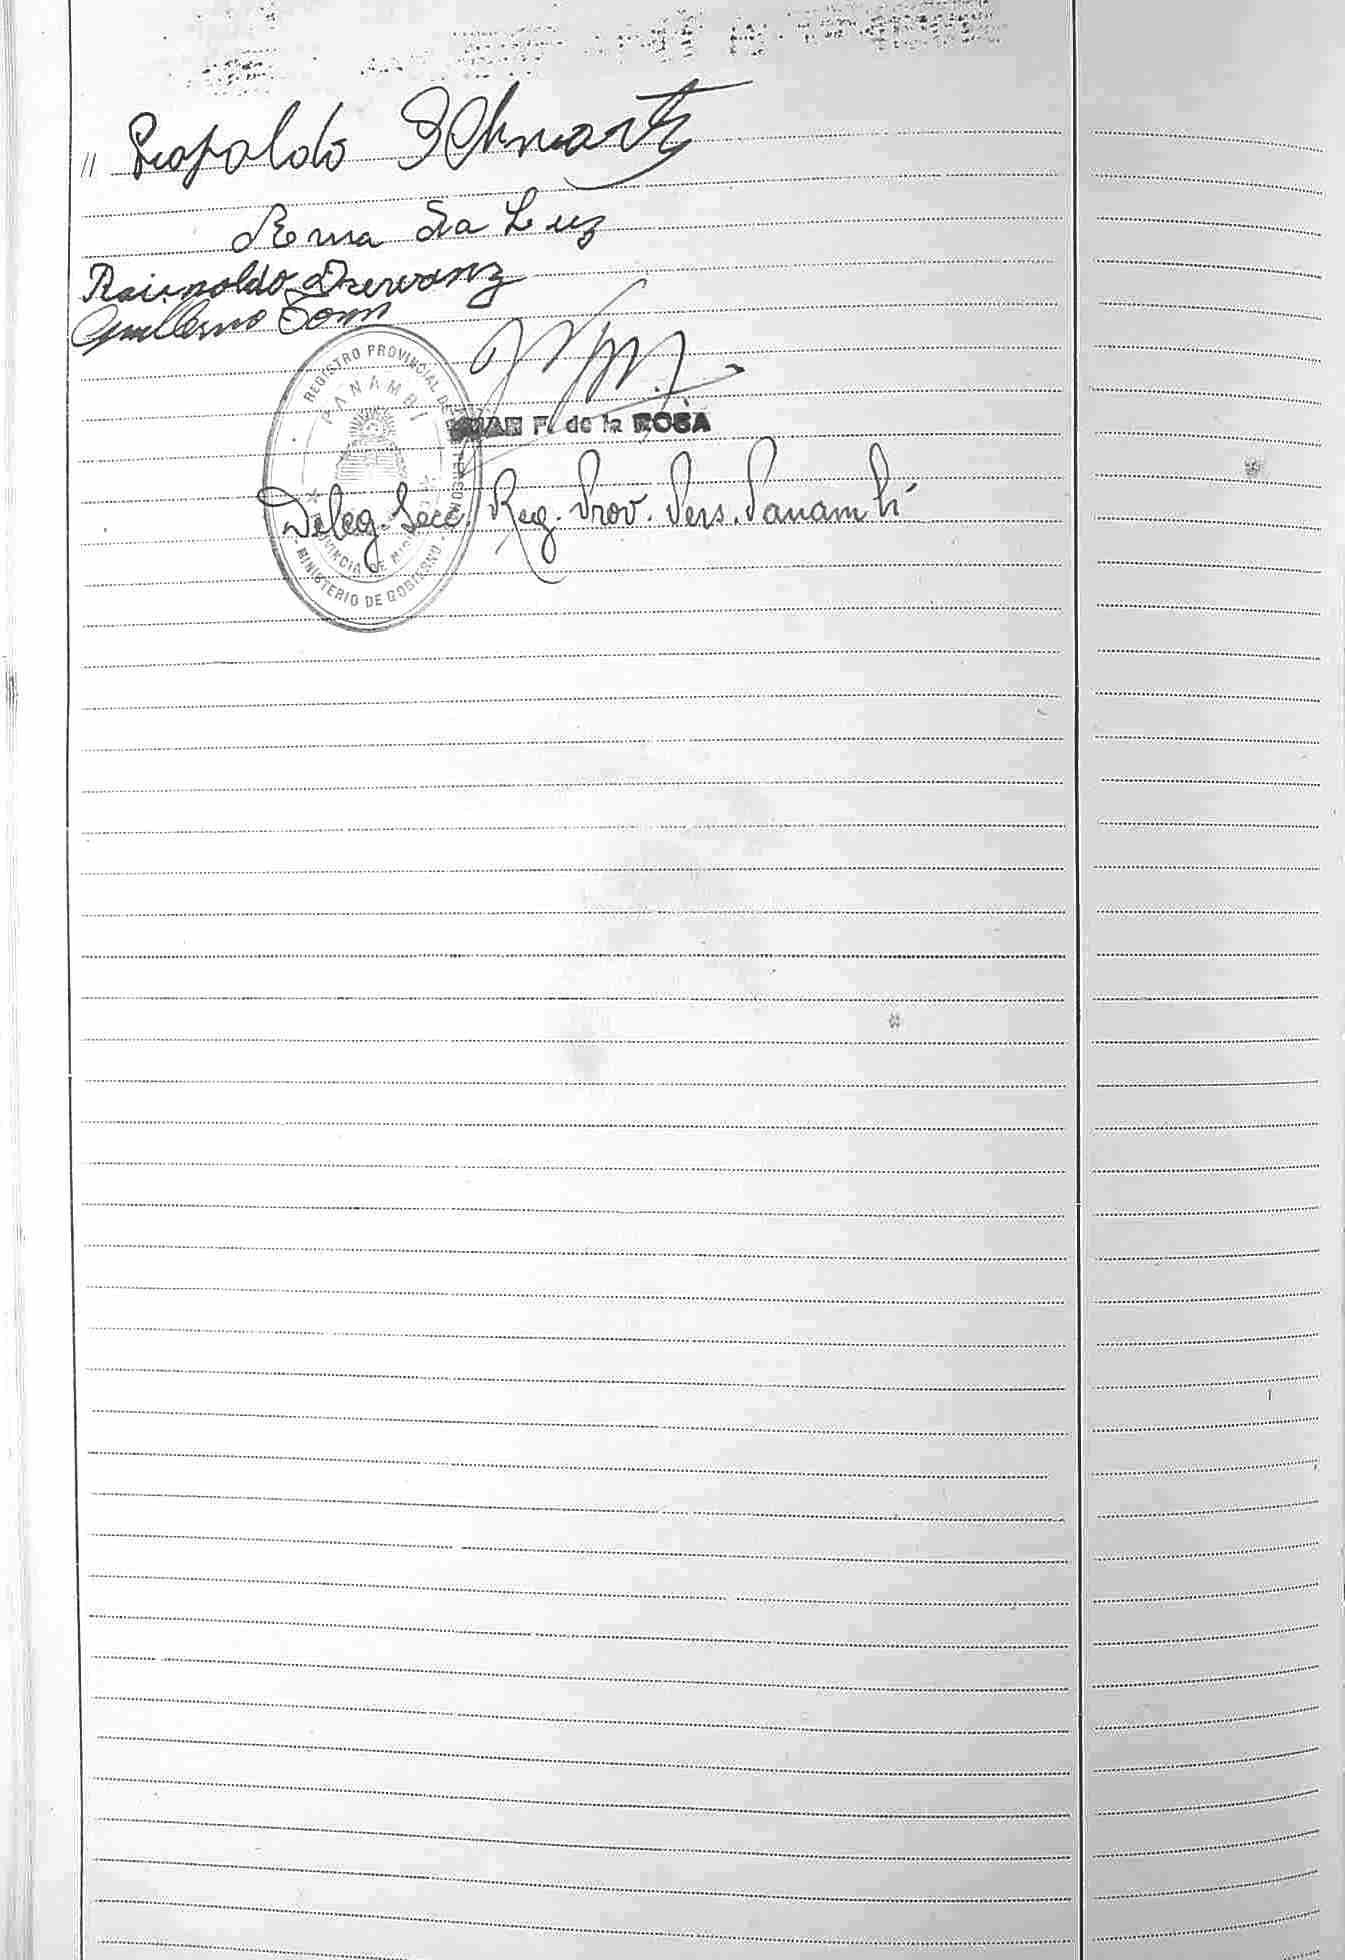 // Leopoldo Schwartz
Rema Da Luz
Reinoldo
Guillermo
REGISTRO PROVINCIAL DE PERSONAS
PANAMBI
PROVINCIA DE MISIONES
MINISTERIO DE GOBIERNO
JUAN F. de la ROSA
Deleg. Secc. Reg. Prov. Pers. Panambí